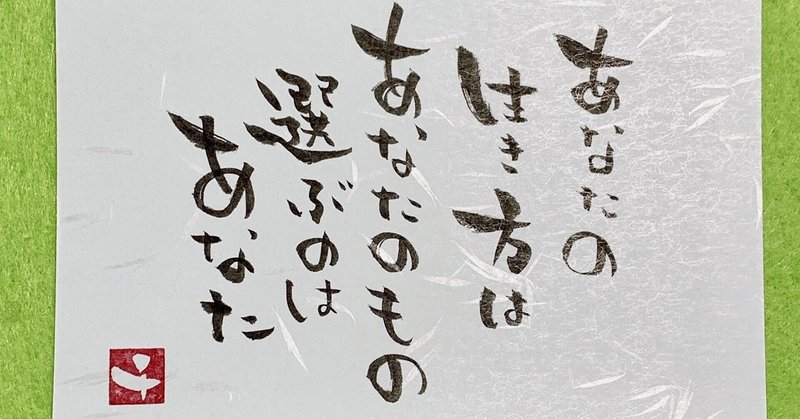 あなたの
生き方は
あなたのもの
選ぶのは
あなた